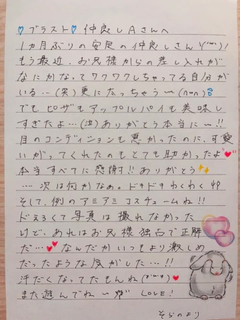 ♡プラスト♡仲良しAさんへ
1ヵ月ぶりの安定の仲良しさん
もう最近、お兄様からの差し入れが
なにかなってワクワクしちゃってる自分が
いる…(笑)裏になっちゃう〜
でもピザもアップルパイも美味し
すぎたよ…(泣)ありがとう本当に〜!!
目のコンディションも悪かったのに、可愛
いがってくれたのもとても助かったよ♥
本当すべてに感謝!!ありがとう
…次は何かなぁ。ドキドキわくわく
そして、例のアミアミコスチュームね!!
どえろくて写真は撮れなかった
けど、あれはお兄様独占で正解
だ…♥なんだかいつもより激しめ
だったような気がした…!!
汗だくなってたもんね
また遊んでね〜 LOVE!
そらのより